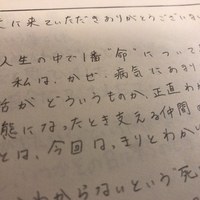 に来ていただきありがとうござい
人生の中で1番"命"について
私は、かぜ、病気にあまり
活がどういうものか、正直わ
態になったとき支える仲間
とは、今回はっきりとわか
わからないという"死